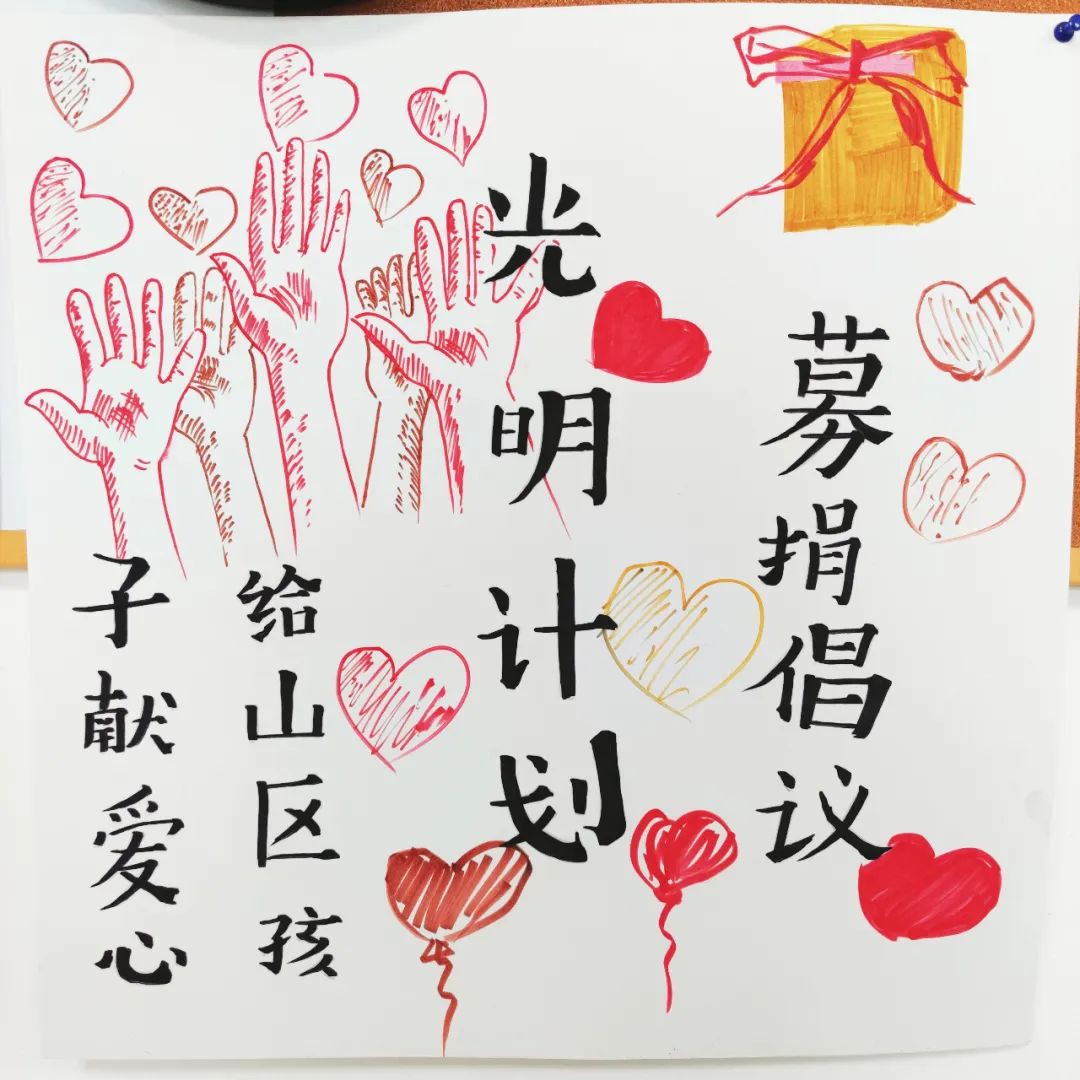 募捐倡议
光明计划
给山区孩
子献爱心